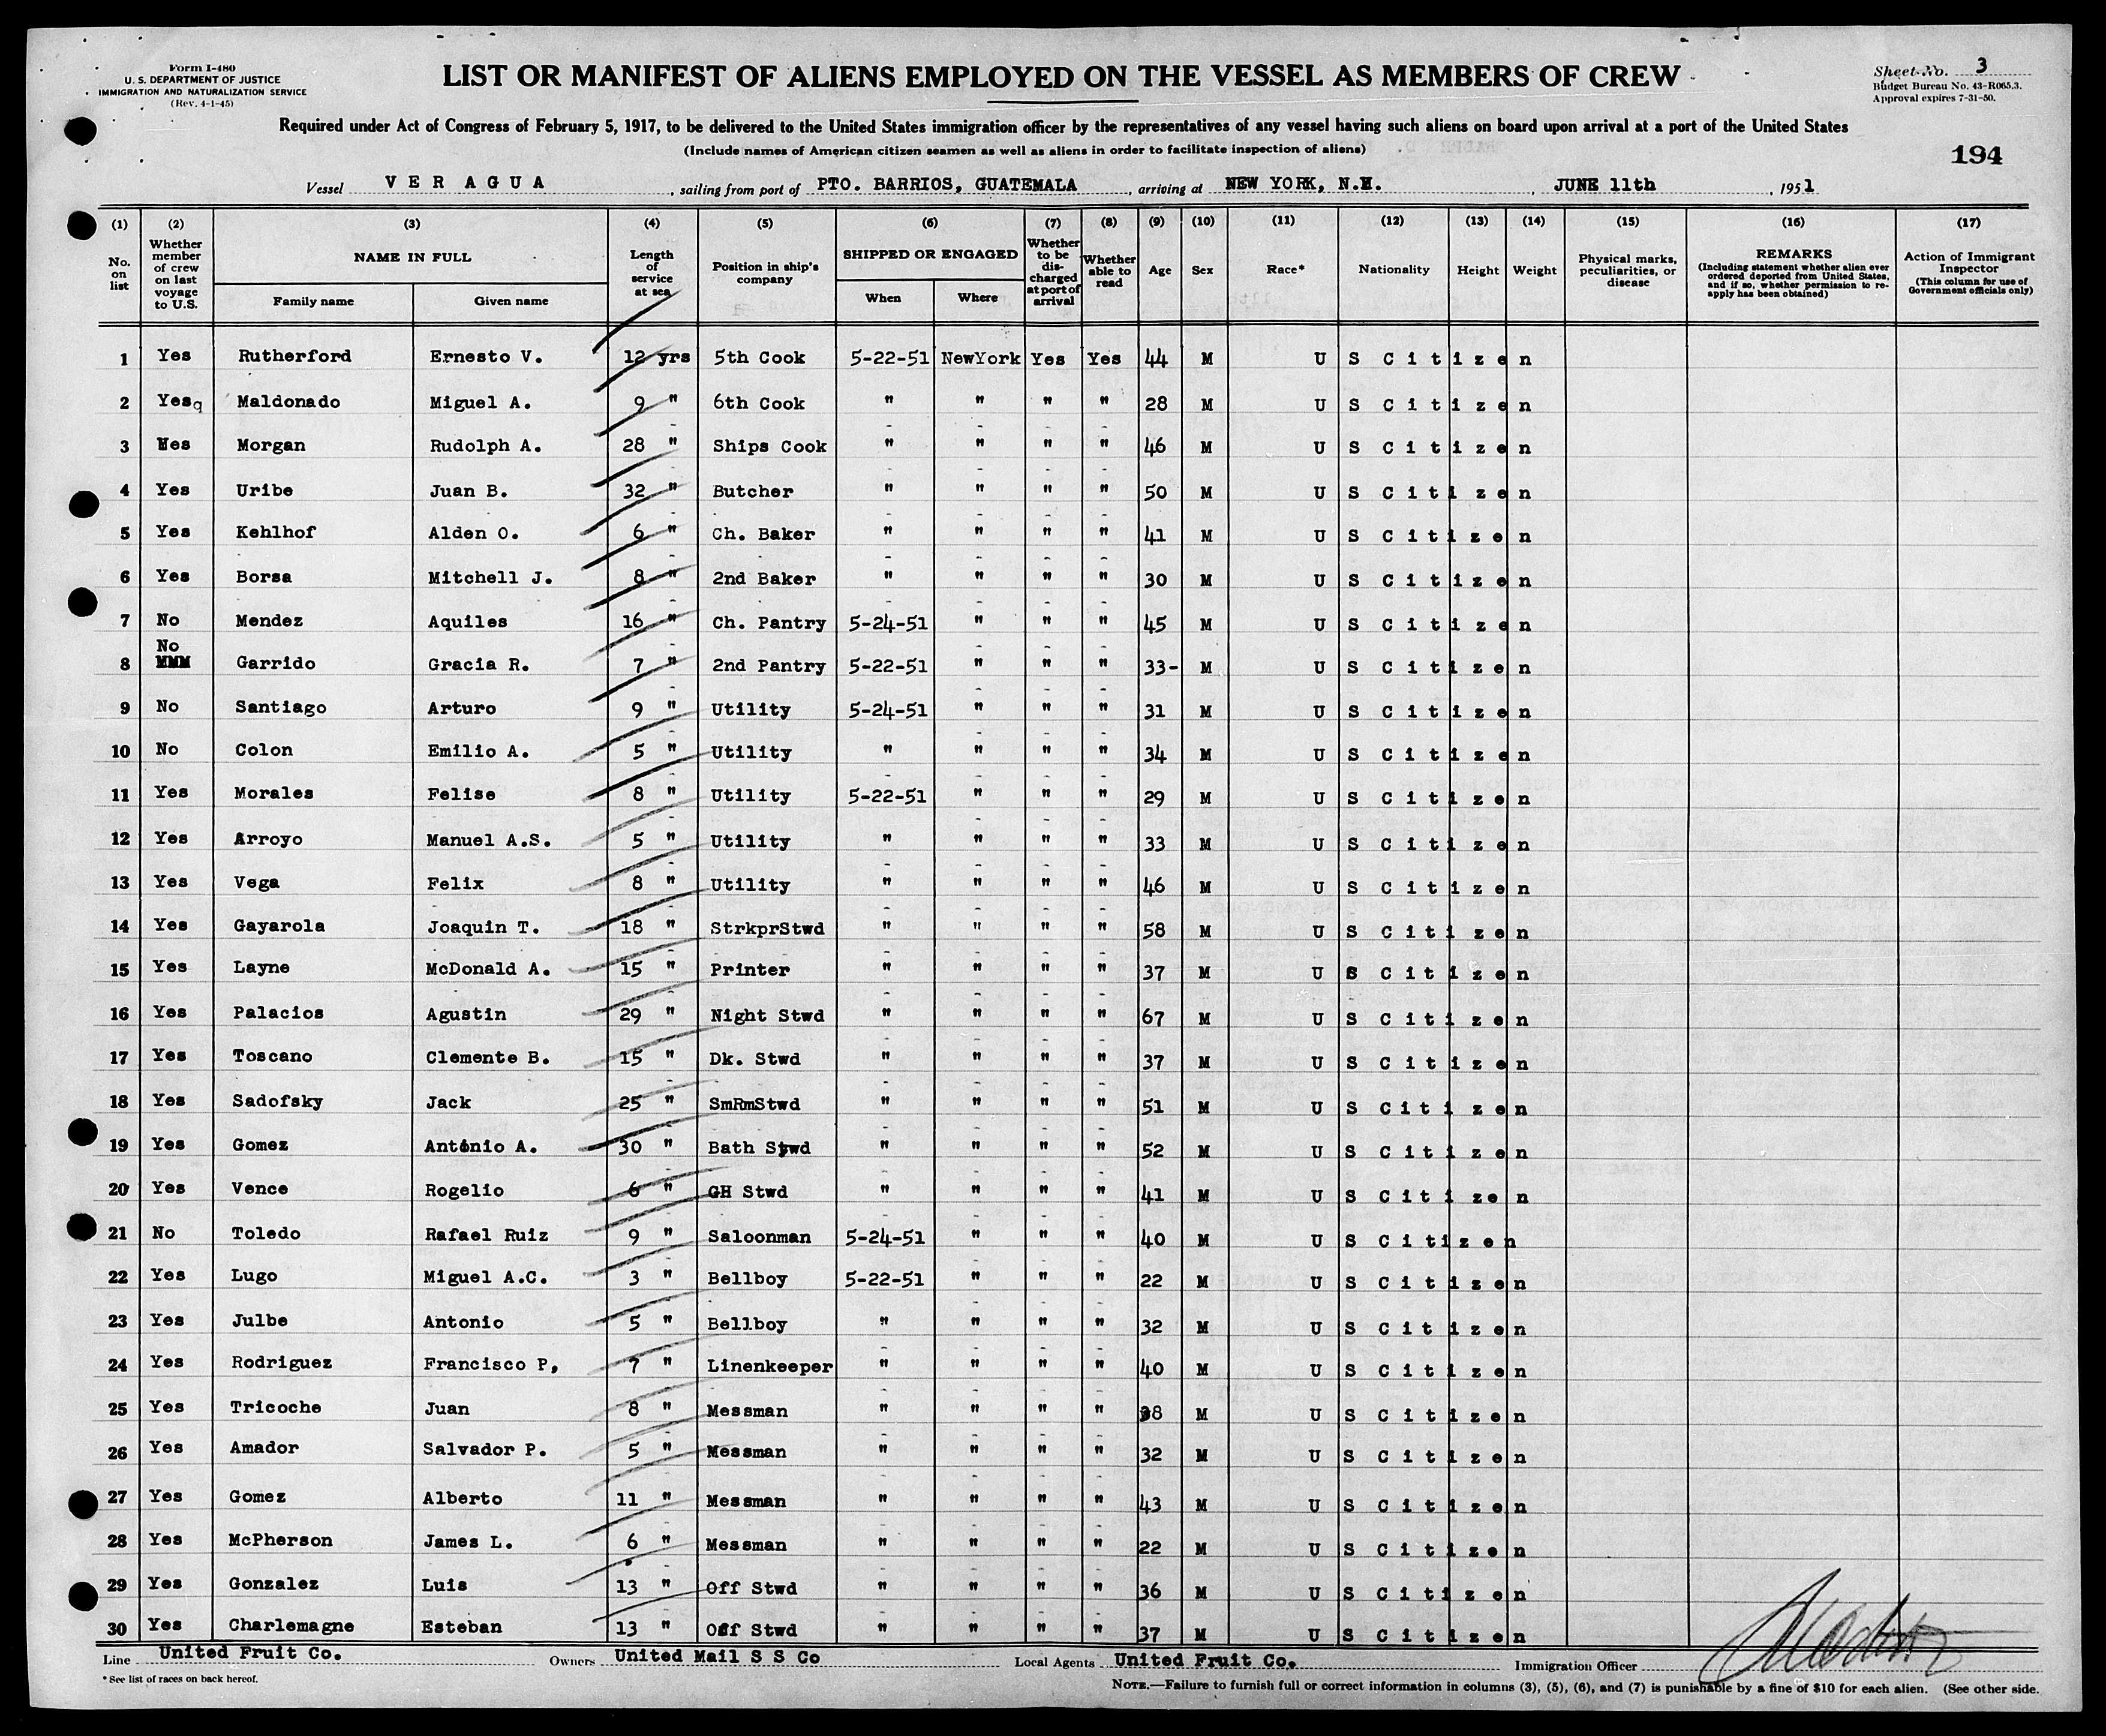 Form I-480
U. S. DEPARTMENT OF JUSTICE
IMMIGRATION AND NATURALIZATION SERVICE
(Rev. 4-1-45)
LIST OR MANIFEST OF ALIENS EMPLOYED ON THE VESSEL AS MEMBERS OF CREW
Sheet No. 3
Budget Bureau No. 43-R065.3.
Approval expires 7-31-50.
Required under Act of Congress of February 5, 1917, to be delivered to the United States immigration officer by the representatives of any vessel having such aliens on board upon arrival at a port of the United States
(Include names of American citizen seamen as well as aliens in order to facilitate inspection of aliens)
194
Vessel V E R A G U A , sailing from port of PTO. BARRIOS, GUATEMALA , arriving at NEW YORK, N.Y. , JUNE 11th , 1951
(1) (2) (3) (4) (5) (6) (7) (8) (9) (10) (11) (12) (13) (14) (15) (16) (17)
No. on list
Whether member of crew on last voyage to U.S.
NAME IN FULL
Family name Given name
Length of service at sea
Position in ship's company
SHIPPED OR ENGAGED
When Where
Whether to be discharged at port of arrival
Whether able to read
Age Sex Race* Nationality Height Weight
Physical marks, peculiarities, or disease
REMARKS
(Including statement whether alien ever ordered deported from United States, and if so, whether permission to re-apply has been obtained)
Action of Immigrant Inspector
(This column for use of Government officials only)
1 Yes Rutherford Ernesto V. 12 yrs 5th Cook 5-22-51 NewYork Yes Yes 44 M U S Citizen
2 Yesq Maldonado Miguel A. 9 " 6th Cook " " " " 28 M U S Citizen
3 Yes Morgan Rudolph A. 28 " Ships Cook " " " " 46 M U S Citizen
4 Yes Uribe Juan B. 32 " Butcher " " " " 50 M U S Citizen
5 Yes Kehlhof Alden O. 6 " Ch. Baker " " " " 41 M U S Citizen
6 Yes Borsa Mitchell J. 8 " 2nd Baker " " " " 30 M U S Citizen
7 No Mendez Aquiles 16 " Ch. Pantry 5-24-51 " " " 45 M U S Citizen
8 No MMM Garrido Gracia R. 7 " 2nd Pantry 5-22-51 " " " 33- M U S Citizen
9 No Santiago Arturo 9 " Utility 5-24-51 " " " 31 M U S Citizen
10 No Colon Emilio A. 5 " Utility " " " " 34 M U S Citizen
11 Yes Morales Felise 8 " Utility 5-22-51 " " " 29 M U S Citizen
12 Yes Arroyo Manuel A.S. 5 " Utility " " " " 33 M U S Citizen
13 Yes Vega Felix 8 " Utility " " " " 46 M U S Citizen
14 Yes Gayarola Joaquin T. 18 " StrkprStwd " " " " 58 M U S Citizen
15 Yes Layne McDonald A. 15 " Printer " " " " 37 M U S Citizen
16 Yes Palacios Agustin 29 " Night Stwd " " " " 67 M U S Citizen
17 Yes Toscano Clemente B. 15 " Dk. Stwd " " " " 37 M U S Citizen
18 Yes Sadofsky Jack 25 " SmRmStwd " " " " 51 M U S Citizen
19 Yes Gomez Antonio A. 30 " Bath Stwd " " " " 52 M U S Citizen
20 Yes Vence Rogelio 6 " GH Stwd " " " " 41 M U S Citizen
21 No Toledo Rafael Ruiz 9 " Saloonman 5-24-51 " " " 40 M U S Citizen
22 Yes Lugo Miguel A.C. 3 " Bellboy 5-22-51 " " " 22 M U S Citizen
23 Yes Julbe Antonio 5 " Bellboy " " " " 32 M U S Citizen
24 Yes Rodriguez Francisco P, 7 " Linenkeeper " " " " 40 M U S Citizen
25 Yes Tricoche Juan 8 " Messman " " " " 38 M U S Citizen
26 Yes Amador Salvador P. 5 " Messman " " " " 32 M U S Citizen
27 Yes Gomez Alberto 11 " Messman " " " " 43 M U S Citizen
28 Yes McPherson James L. 6 " Messman " " " " 22 M U S Citizen
29 Yes Gonzalez Luis 13 " Off Stwd " " " " 36 M U S Citizen
30 Yes Charlemagne Esteban 13 " Off Stwd " " " " 37 M U S Citizen
Line United Fruit Co. Owners United Mail S S Co Local Agents United Fruit Co. Immigration Officer
*See list of races on back hereof.
NOTE.—Failure to furnish full or correct information in columns (3), (5), (6), and (7) is punishable by a fine of $10 for each alien. (See other side.